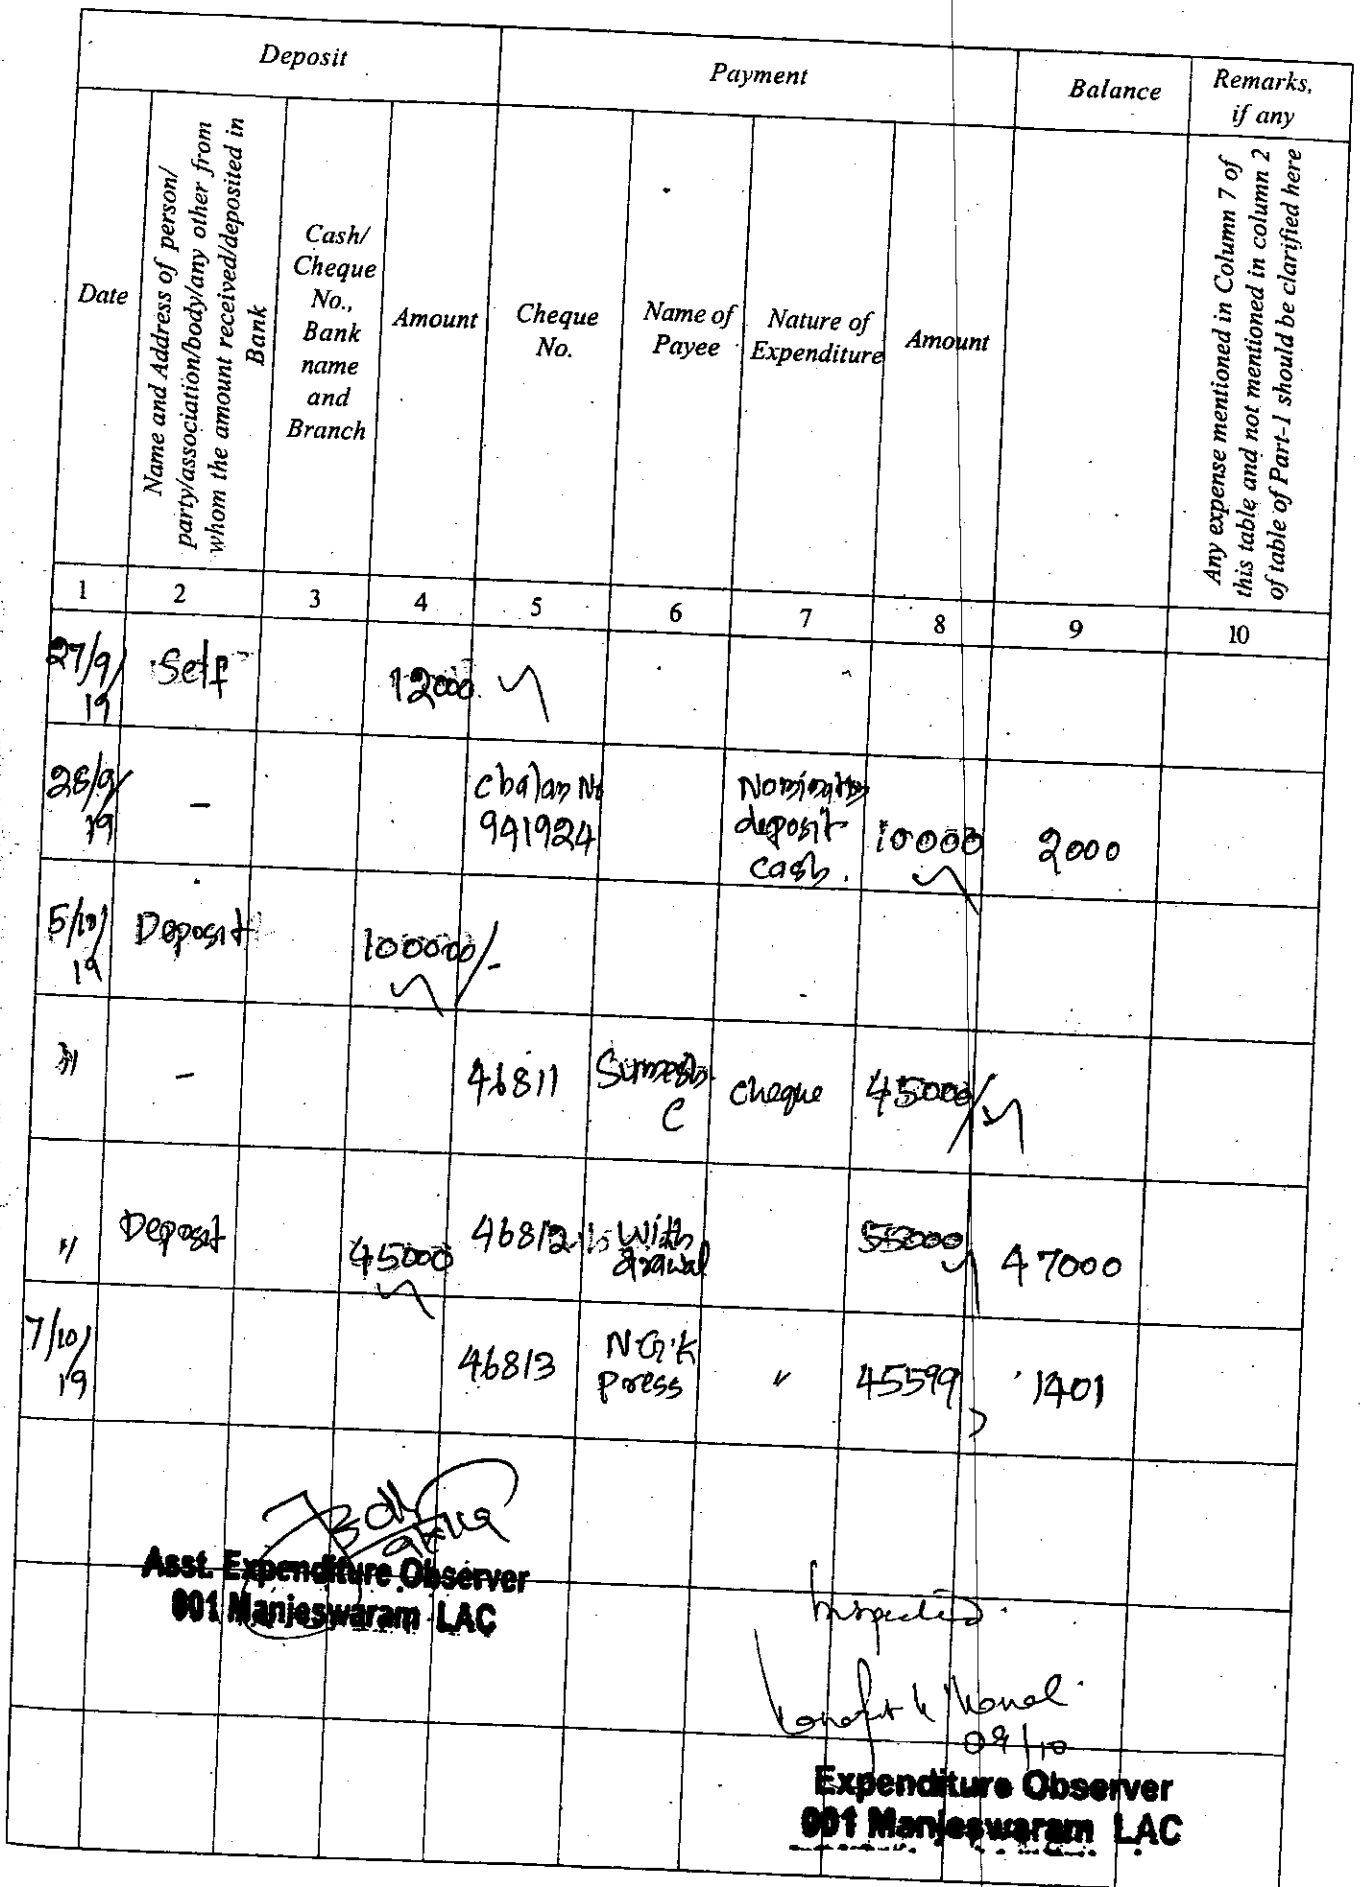 Deposit
Payment
Balance
Remarks,
if any
Date
Name and Address of person/
party/association/body/any other from
whom the amount received/deposited in
Bank
Cash/
Cheque
No.,
Bank
name
and
Branch
Amount
Cheque
No.
Name of
Payee
Nature of
Expenditure
Amount
Any expense mentioned in Column 7 of
this table and not mentioned in column 2
of table of Part-1 should be clarified here
1 2 3 4 5 6 7 8 9 10
27/9/
19
Self
12000
28/9/
19
-
Chalan No
941924
Nomination
deposit
cash.
10000
2000
5/10/
19
Deposit
100000/-
"
-
46811
Sumesh
C
cheque
45000/
"
Deposit
45000
46812
With
drawal
55000
47000
7/10/
19
46813
N.G.K
Press
"
45599
1401
Asst. Expenditure Observer
001 Manjeswaram LAC
Inspected
09/10
Expenditure Observer
001 Manjeswaram LAC